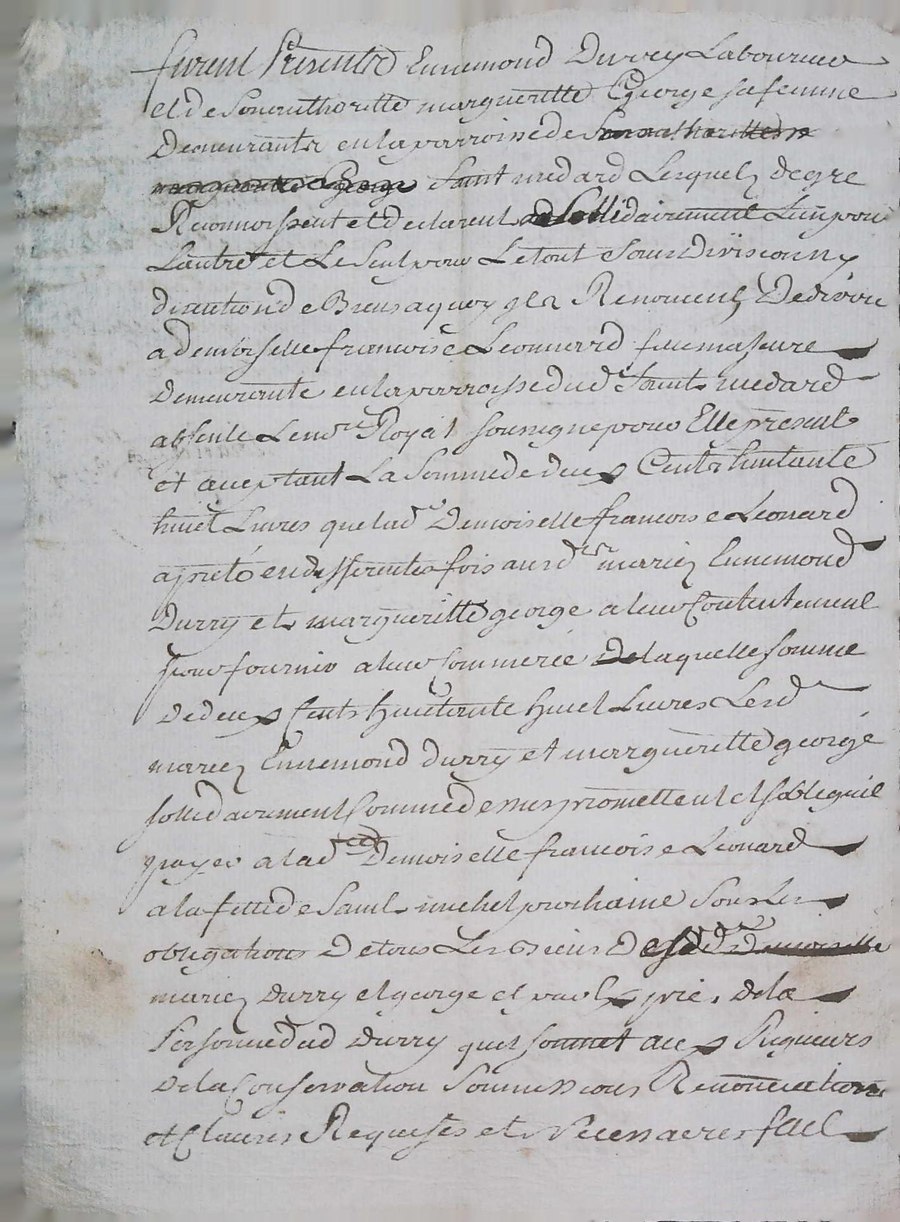 furent Présents Ennemond Durry Laboureur
et de Son authoritté margueritte George sa femme
Demeurants en la parroisse de Son authoritté
margueritte George Saint medard Lesquelz de gré
Reconnoissent et declarent Sollidairement Lun pour
Lautre et Le Seul pour Le tout Sans Division ny
discution de Biens a quoy ils Renoncent Devoir
a demoiselle francoise Leonnard fille majeure
Demeurante en la parroisse dud Saint medard
absente Le no.re Royal soussigné pour Elle présent
et acceptant La Somme de deux Cents huitante
huict Livres que lad.e Demoiselle francoise Léonard
a preté en differentes fois ausd.ts mariez Ennemond
Durry et margueritte george a leur Contentement
pour fournir a leur Commerce De laquelle somme
De deux Cents huitante huict Livres Lesd.
mariez Ennemond durry et margueritte george
sollidairement Comme dessus promettent et soblegent
payer a lad.e Demoiselle francoise Léonard
a la fette de Saint michel prochaine Sous Les
obligations De tous Les Biens Desd.ts Demoiselle
mariez Durry et george et par Exprés De la
Personne dud Durry quil Sommet aux Rigueurs
De la Conservation Sommissions Renonciations
et Clauses Requises et Necessaires fait